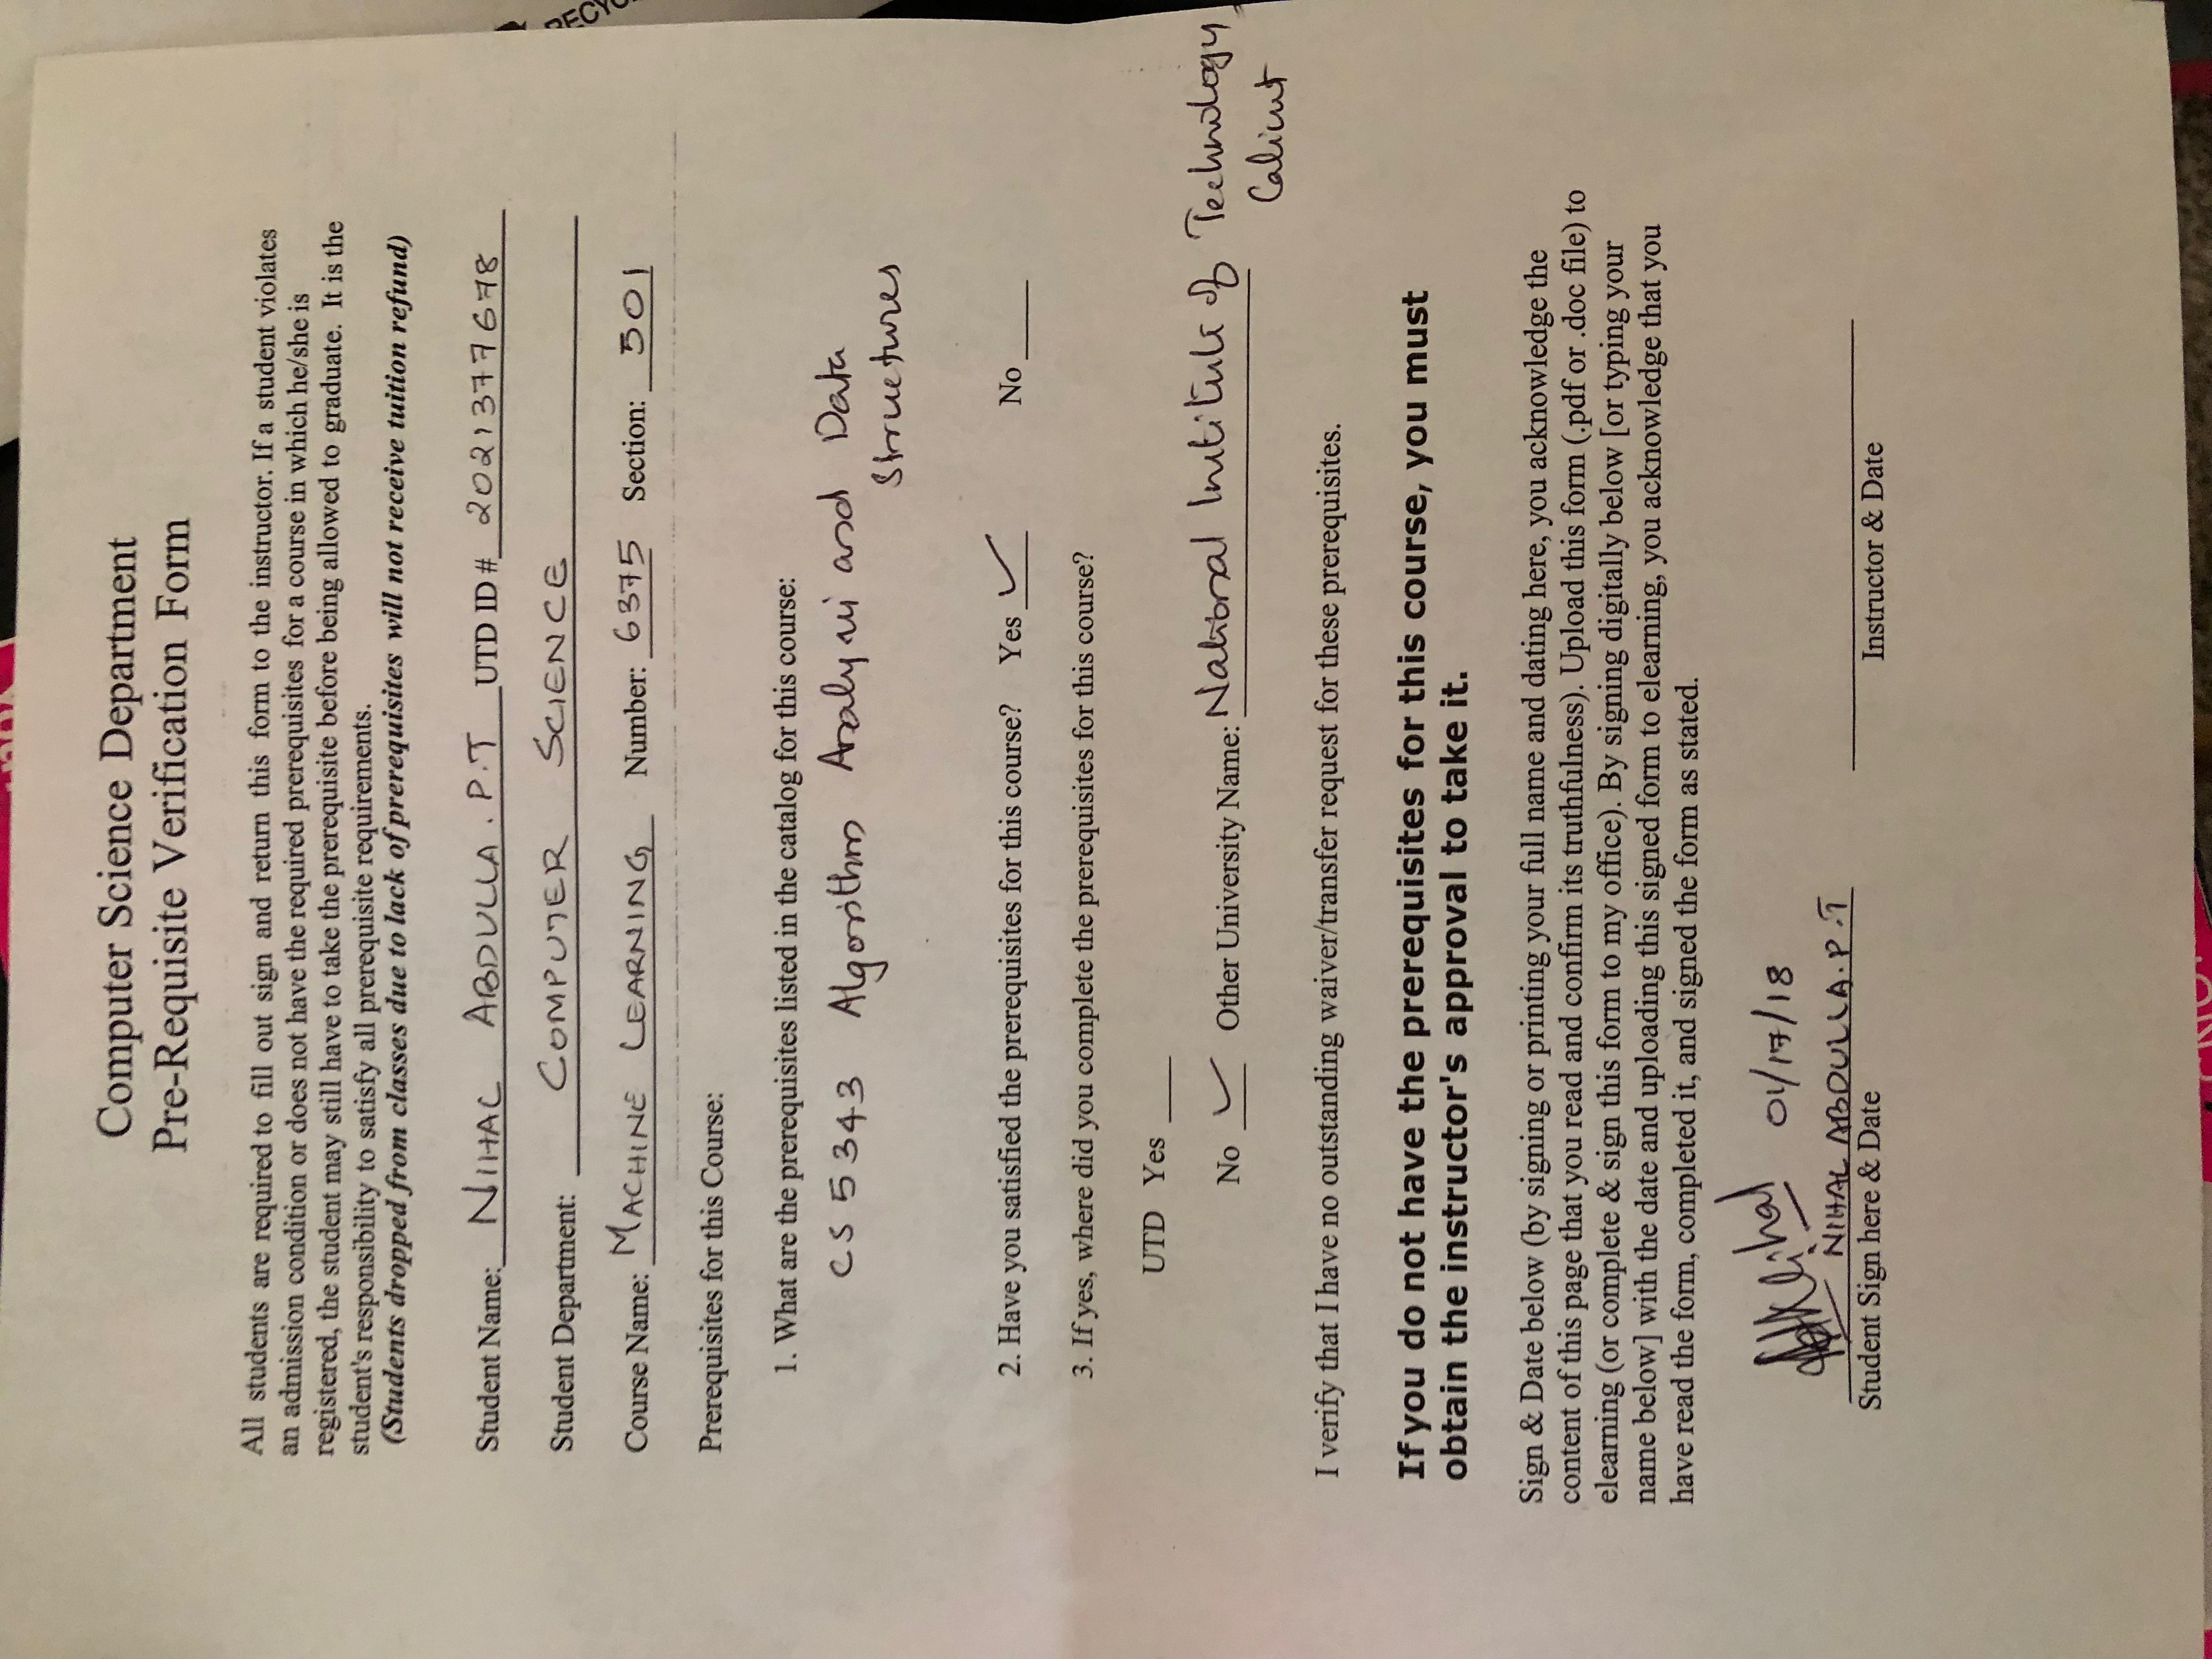 Computer Science Department
Pre-Requisite Verification Form
All students are required to fill out sign and return this form to the instructor. If a student violates
an admission condition or does not have the required prerequisites for a course in which he/she is
registered, the student may still have to take the prerequisite before being allowed to graduate. It is the
student's responsibility to satisfy all prerequisite requirements.
(Students dropped from classes due to lack of prerequisites will not receive tuition refund)
Student Name: NIHAL ABDULLA . P.T UTD ID # 2021377678
Student Department: COMPUTER SCIENCE
Course Name: MACHINE LEARNING Number: 6375 Section: 501
Prerequisites for this Course:
1. What are the prerequisites listed in the catalog for this course:
CS 5343 Algorithm Analysis and Data
Structures
2. Have you satisfied the prerequisites for this course? Yes ✓ No
3. If yes, where did you complete the prerequisites for this course?
UTD Yes
No ✓ Other University Name: National Institute of Technology,
Calicut
I verify that I have no outstanding waiver/transfer request for these prerequisites.
If you do not have the prerequisites for this course, you must
obtain the instructor's approval to take it.
Sign & Date below (by signing or printing your full name and dating here, you acknowledge the
content of this page that you read and confirm its truthfulness). Upload this form (.pdf or .doc file) to
elearning (or complete & sign this form to my office). By signing digitally below [or typing your
name below] with the date and uploading this signed form to elearning, you acknowledge that you
have read the form, completed it, and signed the form as stated.
01/17/18
NIHAL ABDULLA. P.T
Student Sign here & Date Instructor & Date